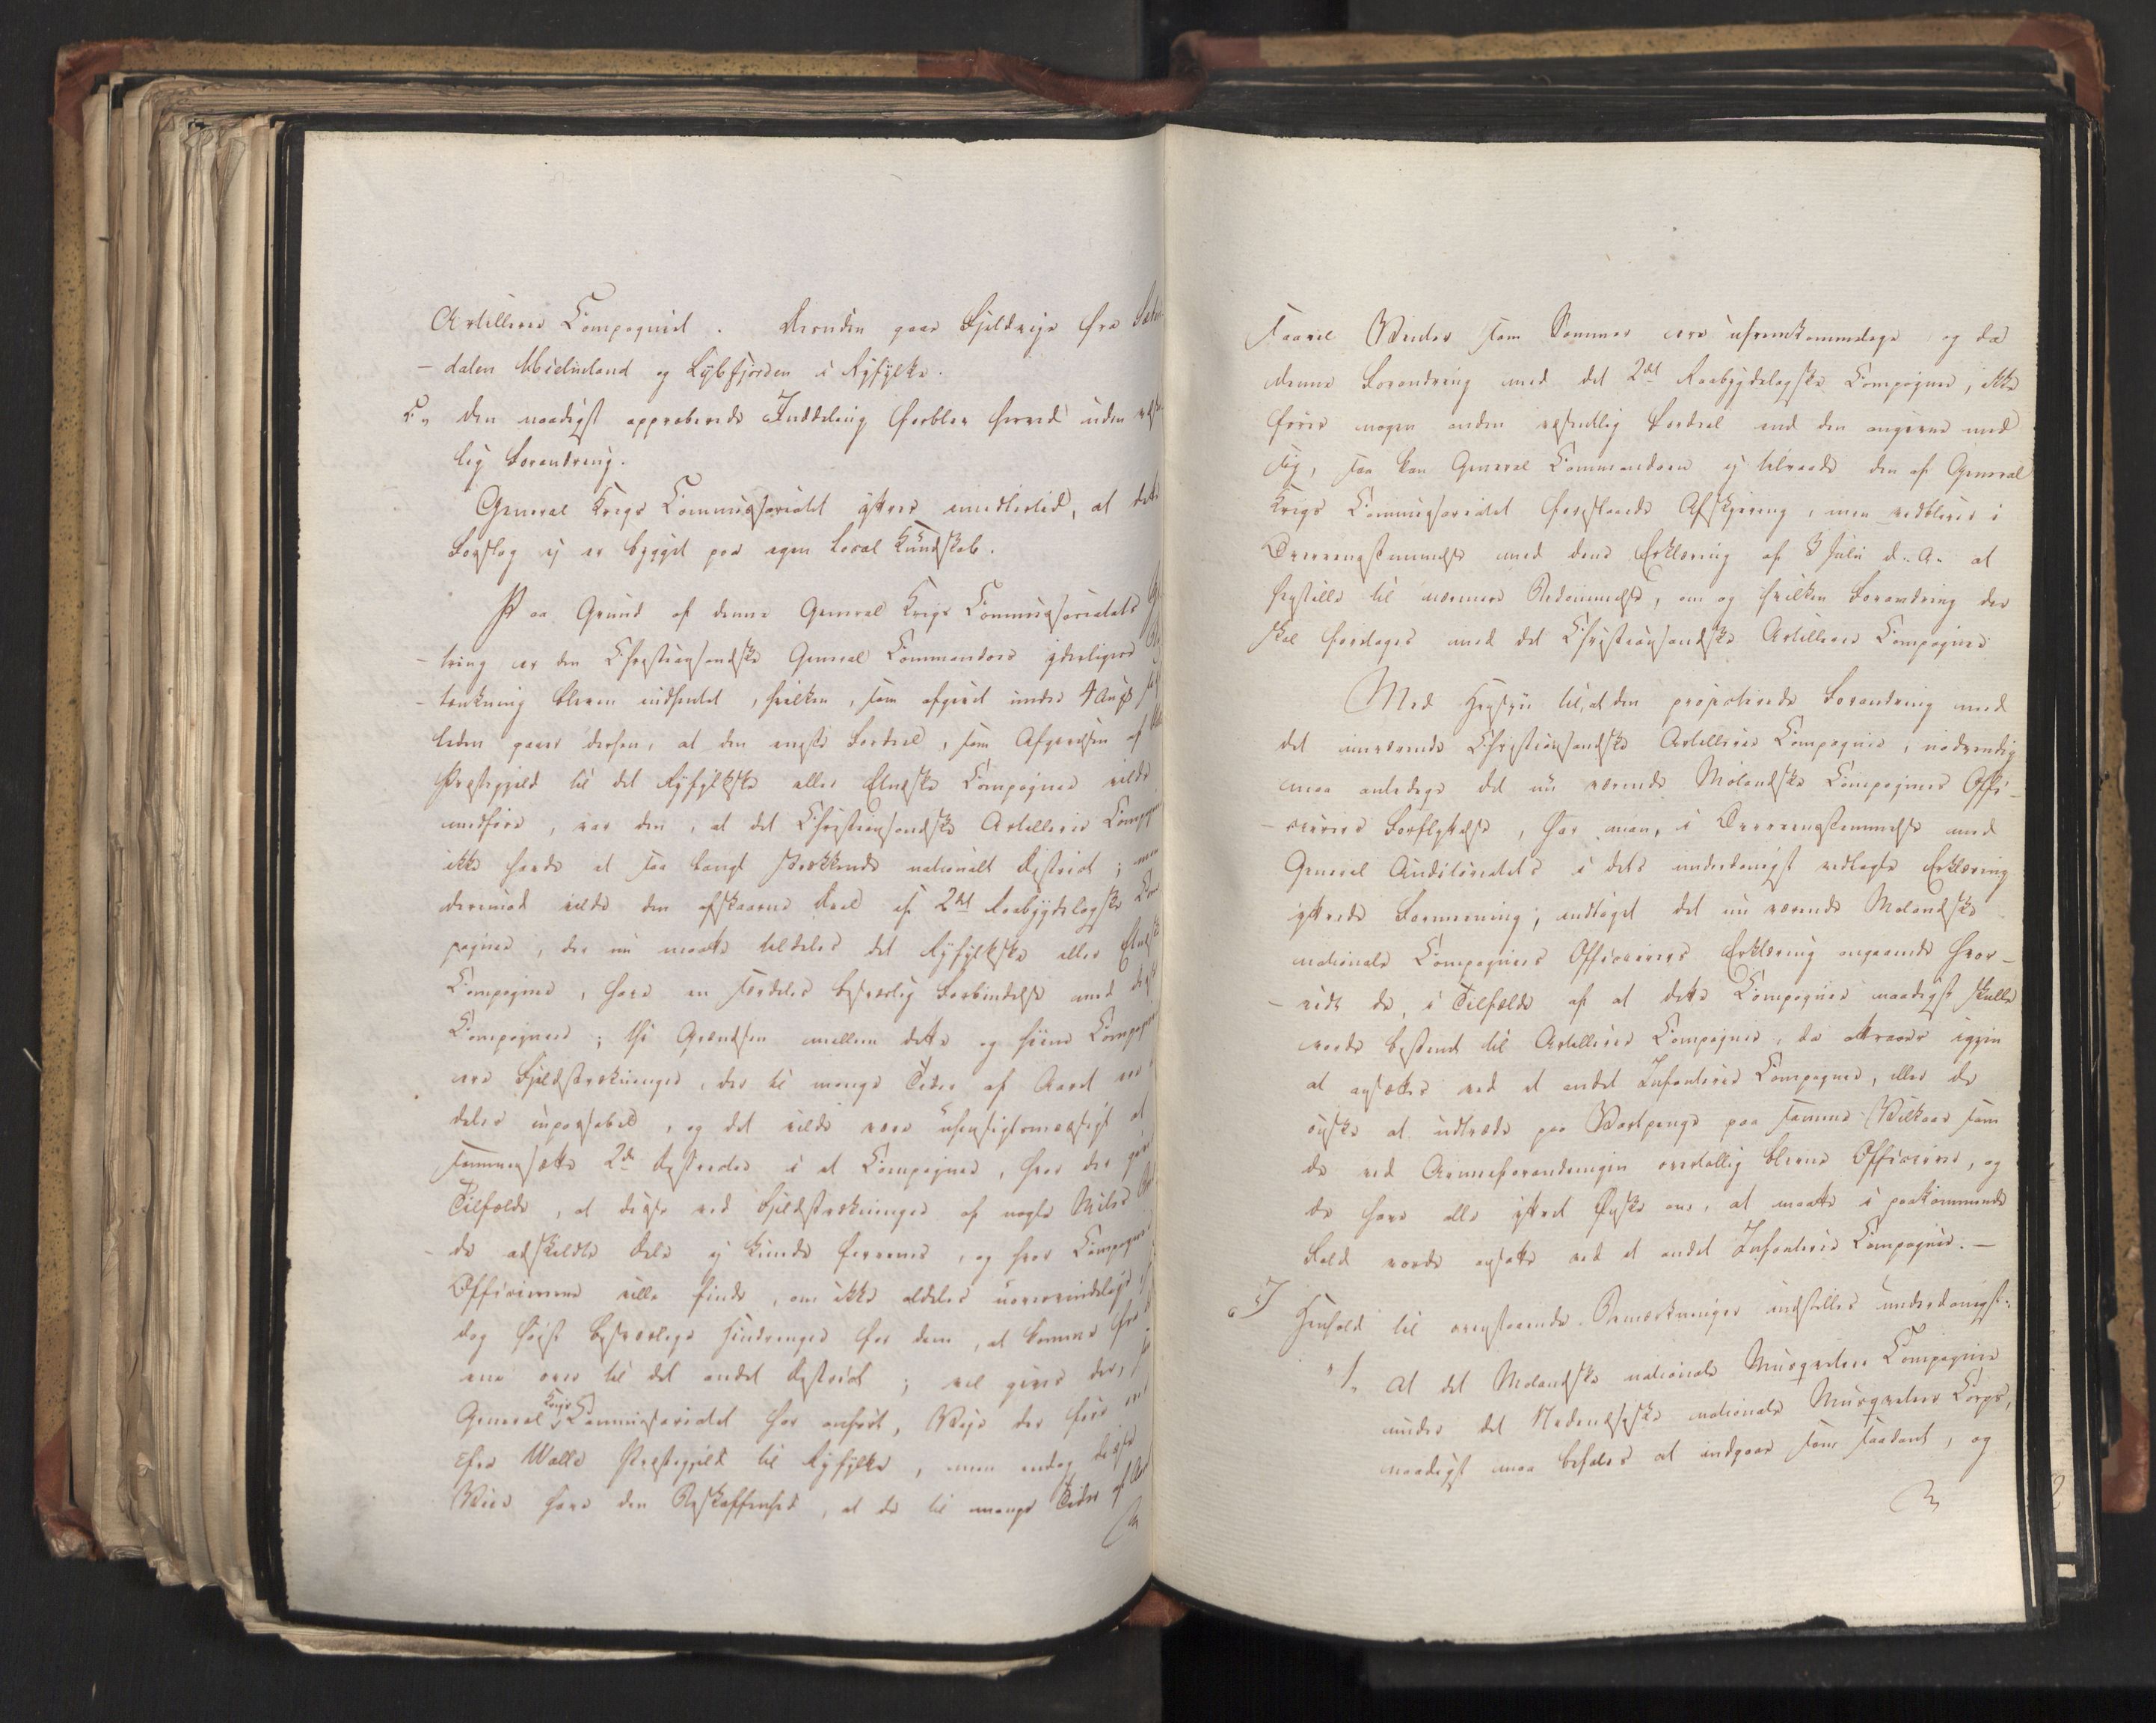 Artillerie Compagniet. Desuden gaae Fjeldveje fra Sæters
-dalen til Lysefjorden i Ryfylke.
C., den naadigst approberede Inddeling forbler herved uden væsent
lig Forandring.
General Krigs Commissariatet yttrer imidlertid, at dette
Forslag ej er bygget paa egen Local Kundskab.
Paa Grund af denne General Krigs Commissariatets
-tring er den Christiansandske General Commandos yderligere
-tænkning bleven indhentet, hvilken, som afgivet under 4 Aug
leden gaaer derhen, at den eneste Fordeel, som Afgivelsen af
Præstegjeld til det Ryfylkske eller Compagnie vilde
medføre, var den, at det Christiansandske Artillerie Compagnie
ikke havde et saa langt strækkende nationalt District; men
derimod vilde den afskaarne Deel af 2det Raabygdelagske Com
pagnie, der nu maatte tildeles det Ryfylkske eller
Compagnie, have en særdeles besværlig Forbindelse med disse
Compagnier; thi Grændsen mellem dette og hiine Compagnier
ere Fjeldstrækninger, der til mange Tider af Aaret
deles inpassabel, og det vilde være uhensigtsmæssigt at
sammensætte 2de Districter i et Compagnie, hvor der gives
Tilfælde, at disse ved Fjeldstrækninger af nogle Miles
de adskildte Dele ej kunde forenes, og hvor Compagnie
Officiererne ville finde, om ikke aldeles uovervindelige,
dog høist besværlige Hindringer for dem, at komme fra det
ene over til det andet District; vel gives der, som
General Krigs Commissariatet har anført, Veje der fører
fra Walle Præstegjeld til Ryfylke, men endog disse
Veie have den Beskaffenhed, at de til mange Tider af Aaret
saavel Vinter som Sommer ere ufremkommelige, og da
denne Forandring med det 2det Raabygdelagske Compagnie, ikke
fører nogen anden væsentlig Fordeel end den angivne med
sig, saa kan General Commandoen ej tilraade den af General
Krigs Commissariatet foreslaaede Afskjæring, men vedbliver i
Overeensstemmelse med dens Erklæring af 8 Juli d. A. at
henstille til nærmere Bedømmelse, om og hvilken Forandring der
skal foretages med det Christiansandske Artillerie Compagnie.
Med Hensyn til, at den proponerede Forandring med
det nuværende Christiansandske Artillerie Compagnie, nødvendig
maa anledige det nu værende Molandske Compagnies Offi-
-cierers Forflyttelse, har man, i Overeensstemmelse med
General Auditoriatets i dets underdanigst vedlagte Erklæring
yttrede Formening, indtaget det nu værende Molandske
nationale Compagnies Officierers Erklæring angaaende hvor-
-vidt de, i Tilfælde af at dette Compagnie naadigst skulde
vorde bestemt til Artillerie Compagnie, da attraaer igjen
at ansættes ved et andet Infanterie Compagnie, eller de
ønske at udtræde paa Vartpenge paa samme Vilkaar som
de ved Armeeforandringen overtallig blevne Officierer, og
de have alle yttret Ønske om, at maatte i paakommende
Fald vorde ansatte ved et andet Infanterie Compagnie. —
I Henhold til ovenstaaende Bemærkninger indstilles underdanigst:
"1, at det Molandske nationale Musqueteer Compagnie
under det Nedenæsske nationale Musqueteer Corps,
naadigst maa befales at indgaae som saadant, og